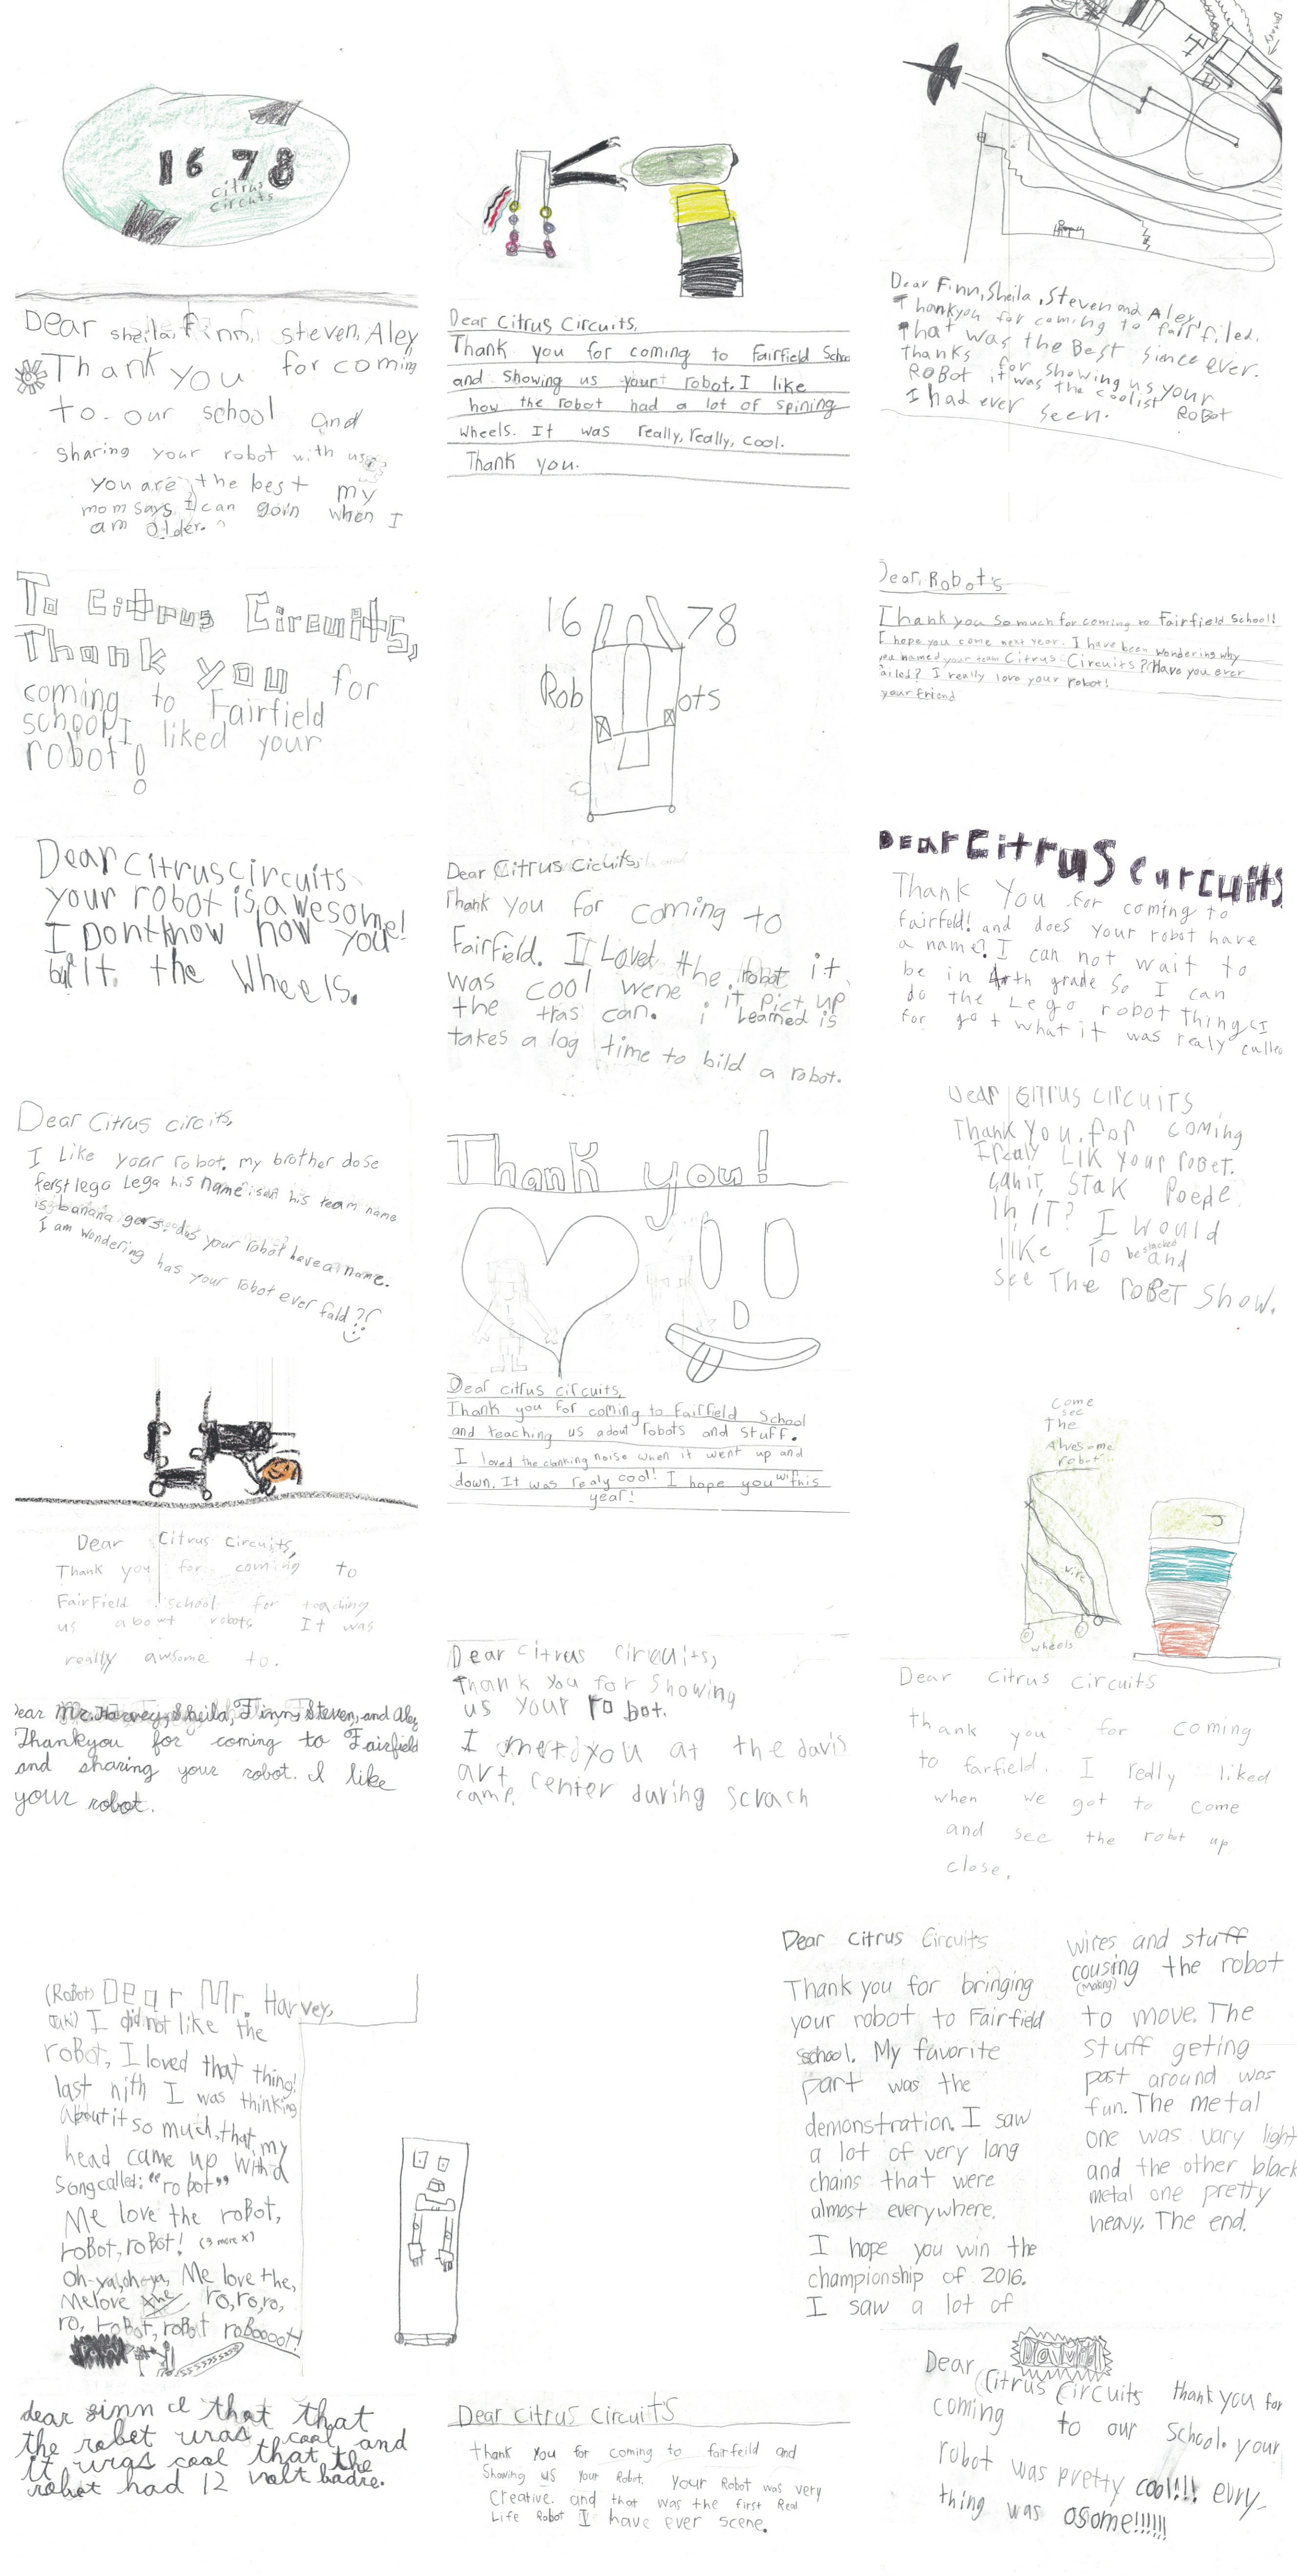 1678
citrus
circuts
Dear sheila, finn, steven, Aley
Thank you for coming
to our school and
sharing your robot with us
you are the best my
mom says I can goin when I
am older.
Dear Citrus Circuits,
Thank you for coming to Fairfield School
and showing us your robot. I like
how the robot had a lot of spining
wheels. It was really, really, cool.
Thank you.
Dear Finn, Sheila, Steven and Aley
Thankyou for coming to fairfiled.
That was the Best sience ever.
Thanks for showing us your
ROBOT it was the coolist ROBOT
I had ever seen.
To Citrus Circuits,
Thank you for
coming to Fairfield
school I liked your
robot!
16 78
Rob ots
Dear, Robot's
Thank you so much for coming to Fairfield School!
I hope you come next year. I have been wondering why
you named your team Citrus Circuits? Have you ever
ailed? I really love your robot!
your friend
Dear Citrus Circuits
your robot is awesome!
I Dont know how you
built the Wheels.
Dear Citrus Cicuits,
Thank you for coming to
Fairfield. I Loved the robot it
was cool wene it pict up
the tras can. i Learned is
takes a log time to bild a robot.
Dear Citrus Curcuits
Thank You for coming to
fairfeld! and does your robot have
a name? I can not wait to
be in 4th grade so I can
do the Lego robot thing (I
for got what it was realy culled
Dear Citrus circits,
I Like your robot. my brother dose
ferst lego Lega his name is his team name
is banana gers. dus your robot have a name.
I am wondering has your robot ever fald??
Thank you!
Dear citrus circuits,
Thank you for coming to Fairfield School
and teaching us adout robots and stuff.
I loved the clanking noise when it went up and
down. It was realy cool! I hope you win this
year!
Dear Citrus Circuits
Thank You for coming
I realy Lik your robet.
can it stak Poeple
in it? I would
like To be stacked and
see The robet show.
Dear Citrus Circuits,
Thank you for coming to
FairField school for teaching
us about robots. It was
really awsome to.
come
see
the
Awesome
robot
wire
wheels
Dear Citrus Circuits
thank you for coming
to farfield. I really liked
when we got to come
and see the robot up
close.
Dear Mr. Harvey, Sheila, Finn, Steven, and Aley
Thankyou for coming to Fairfield
and sharing your robot. I like
your robot.
Dear Citrus Circuits,
Thank You for Showing
us your robot.
I met you at the davis
art center during scrach
camp.
(Robot) Dear Mr. Harvey,
I did not like the
robot, I loved that thing!
last nith I was thinking
About it so much, that my
head came up with a
song called: "robot"
Me love the robot,
robot, robot! (3 more x)
oh-ya, oh-ya, Me love the,
Me love the ro, ro, ro,
ro, robot, robot roboooot!
Dear Citrus Circuits
Thank you for bringing
your robot to Fairfield
school. My favorite
part was the
demonstration. I saw
a lot of very long
chains that were
almost everywhere.
I hope you win the
championship of 2016.
I saw a lot of
wires and stuff
cousing the robot
(making)
to move. The
stuff geting
past around was
fun. The metal
one was vary light
and the other black
metal one pretty
heavy. The end.
dear finn I that that
the robet was cool and
it was cool that the
robet had 12 volt badre.
Dear Citrus Circuits
thank you for coming to fairfeild and
Showing us your Robot. Your Robot was very
Creative. and that was the first Real
Life Robot I have ever scene.
David
Dear Citrus Circuits thank you for
coming to our school. your
robot was pretty cool!!! evry-
thing was osome!!!!!!